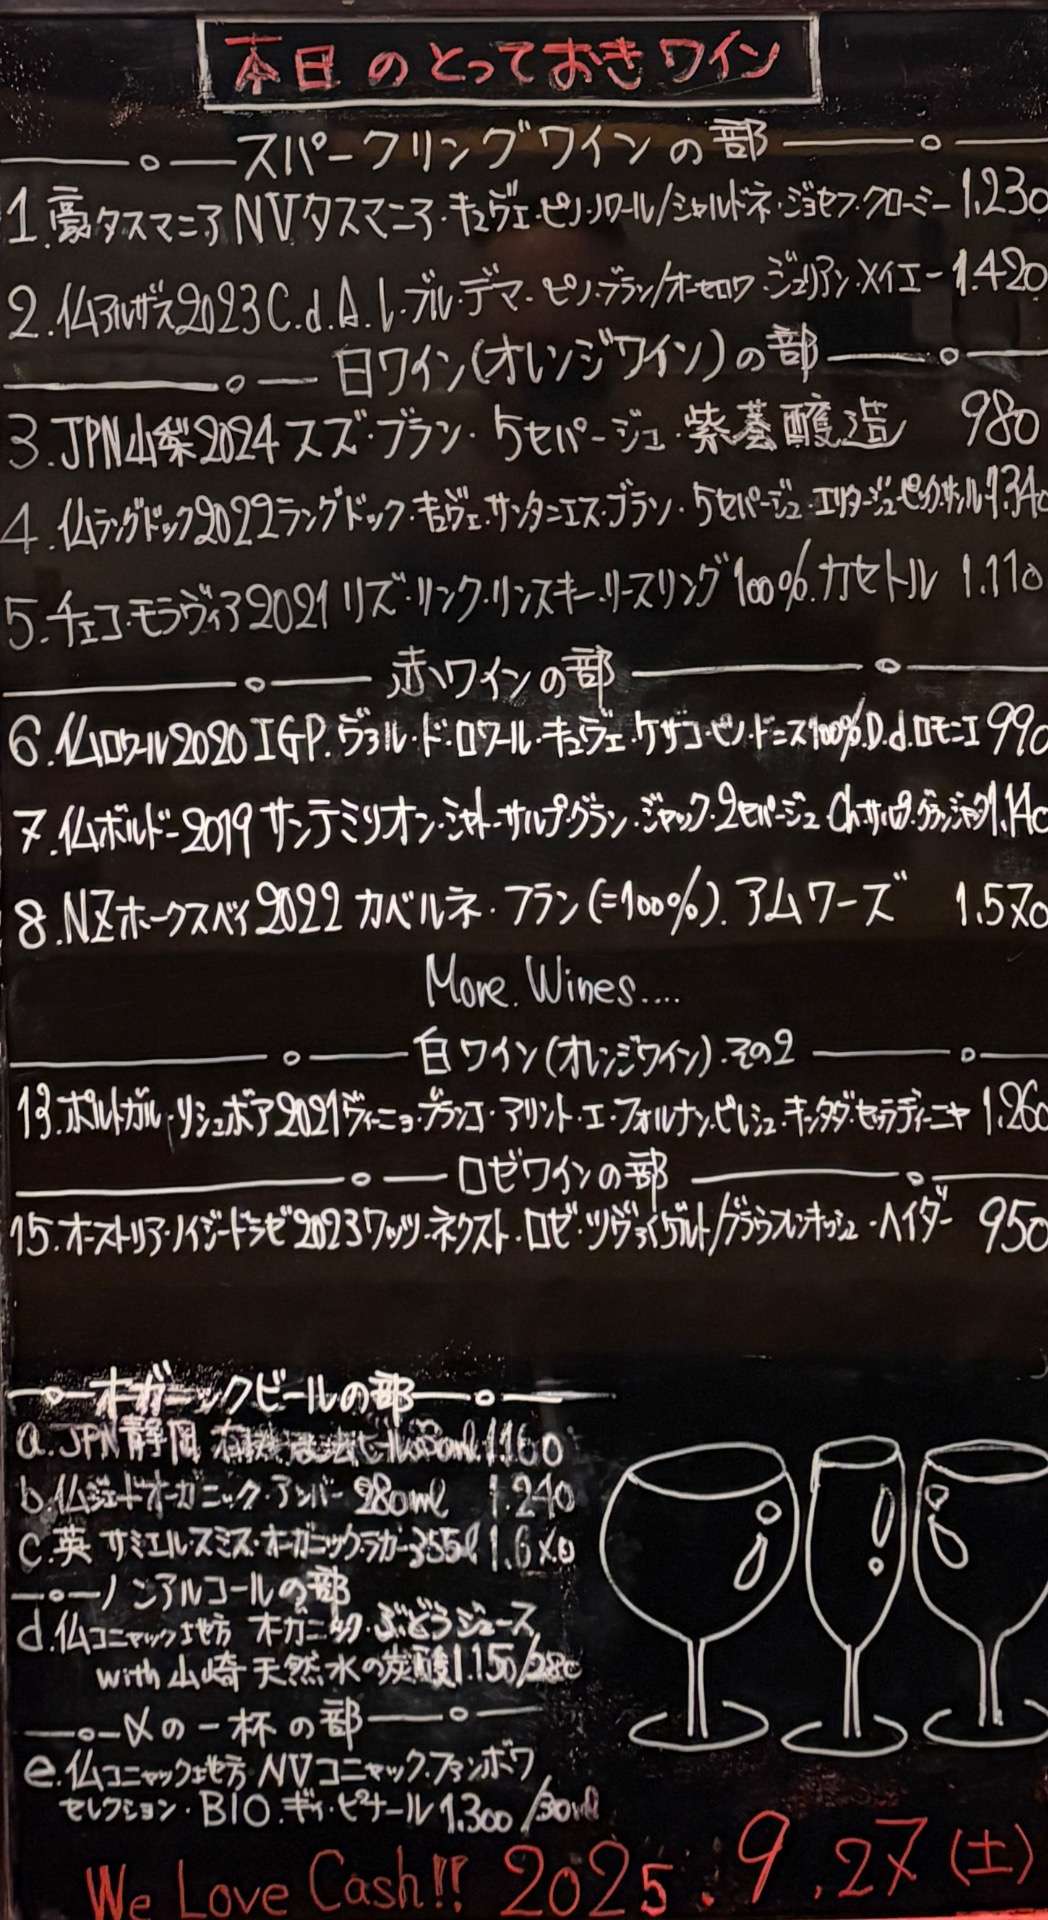 本日のとっておきワイン
スパークリングワインの部
1.豪タスマニア NV タスマニア・キュヴェ・ピノ・ノワール/シャルドネ・ジョセフ・クローミー 1.230
2.仏アルザス2023 C.d.A.レ・ブル・デマ・ピノ・ブラン/オーセロワ・ジュリアン・メイエー 1.420
白ワイン(オレンジワイン)の部
3.JPN山梨2024 スズ・ブラン・5セパージュ・紫葛醸造 980
4.仏ラングドック2022ラングドック・キュヴェ・サンタニエス・ブラン・5セパージュ・エリタージュ・ピック・サン・ル 1.340
5.チェコ・モラヴィア2021 リズ・リンク・リンスキー・リースリング100%.カセトル 1.110
赤ワインの部
6.仏ロワール2020 IGP.ヴァル・ド・ロワール・キュヴェ・ケザコ・ピノ・ドニス100%.D.d.ロモニエ 990
7.仏ボルドー2019 サンテミリオン・シャトーサルプ・グラン・ジャック・2セパージュ Ch.サルプ・グランジャック 1.140
8.NZホークスベイ2022 カベルネ・フラン(=100%).アムワーズ 1.570
More Wines....
白ワイン(オレンジワイン).その2
13.ポルトガル・リシュボア2021ヴィーニョ・ブランコ・アリント・エ・フェルナン・ピレシュ・キンタダ・セラディーニャ 1.260
ロゼワインの部
15.オーストリア・ノイジードラゼ2023ワッツ・ネクスト・ロゼ・ツヴァイゲルト/ブラウフレンキッシュ・ヘイダー 950
オーガニックビールの部
a.JPN静岡 ビール 1.160
b.仏ジェードオーガニック・アンバー 280ml 1.240
c.英 サミエル・スミス・オーガニックラガー355ml 1.6
ノンアルコールの部
d.仏コニャック地方 オーガニック・ぶどうジュース
with 山崎 天然水の炭酸 1.150/280
〆の一杯の部
e.仏コニャック地方 NV コニャック・ファンボワ
セレクション・BIO.ギィ・ピナール 1.300/30ml
We Love Cash!! 2025.9.27(土)